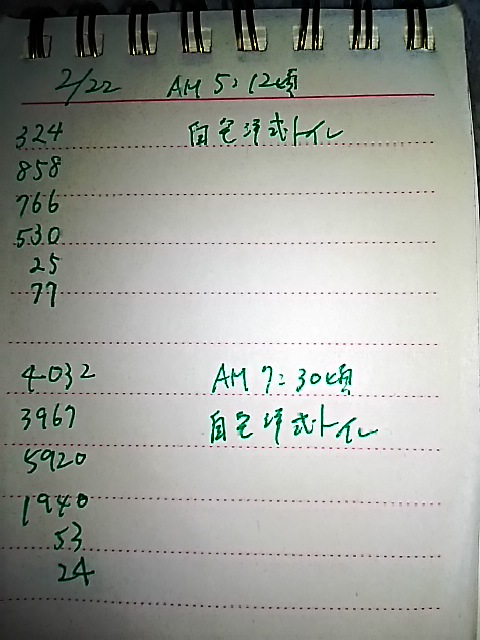 2/22 AM 5:12頃
324 自宅洋式トイレ
858
766
530
25
77
4032 AM 7:30頃
3967 自宅洋式トイレ
5920
1940
53
24